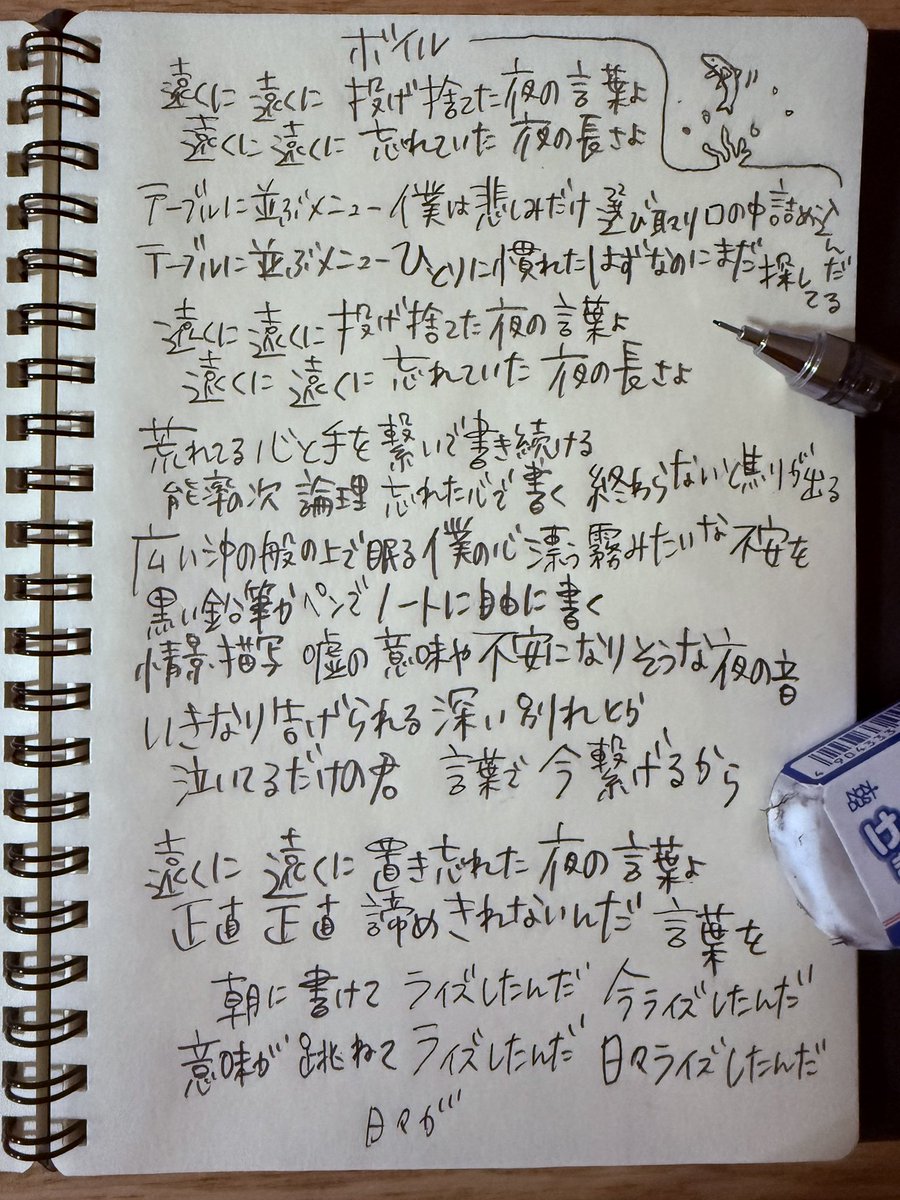 ボイル
遠くに 遠くに 投げ捨てた夜の言葉よ
遠くに遠くに 忘れていた 夜の長さよ
テーブルに並ぶメニュー 僕は悲しみだけ選び取り口の中詰め込んだ
テーブルに並ぶメニューひとりに慣れたはずなのにまだ探してる
遠くに 遠くに投げ捨てた夜の言葉よ
遠くに 遠くに 忘れていた 夜の長さよ
荒れてる心と手を繋いで書き続ける
能率の次 論理 忘れた心で書く 終わらないと焦りが出る
広い沖の船の上で眠る僕の心 漂う霧みたいな不安を
黒い鉛筆かペンでノートに自由に書く
情景描写 嘘の意味や不安になりそうな夜の音
いきなり告げられる深い別れとら
泣いてるだけの君 言葉で今繋げるから
遠くに 遠くに 置き忘れた夜の言葉よ
正直 正直 諦めきれないんだ 言葉を
朝に書けて ライズしたんだ 今ライズしたんだ
意味が跳ねて ライズしたんだ 日々ライズしたんだ
日々が
4904333
け